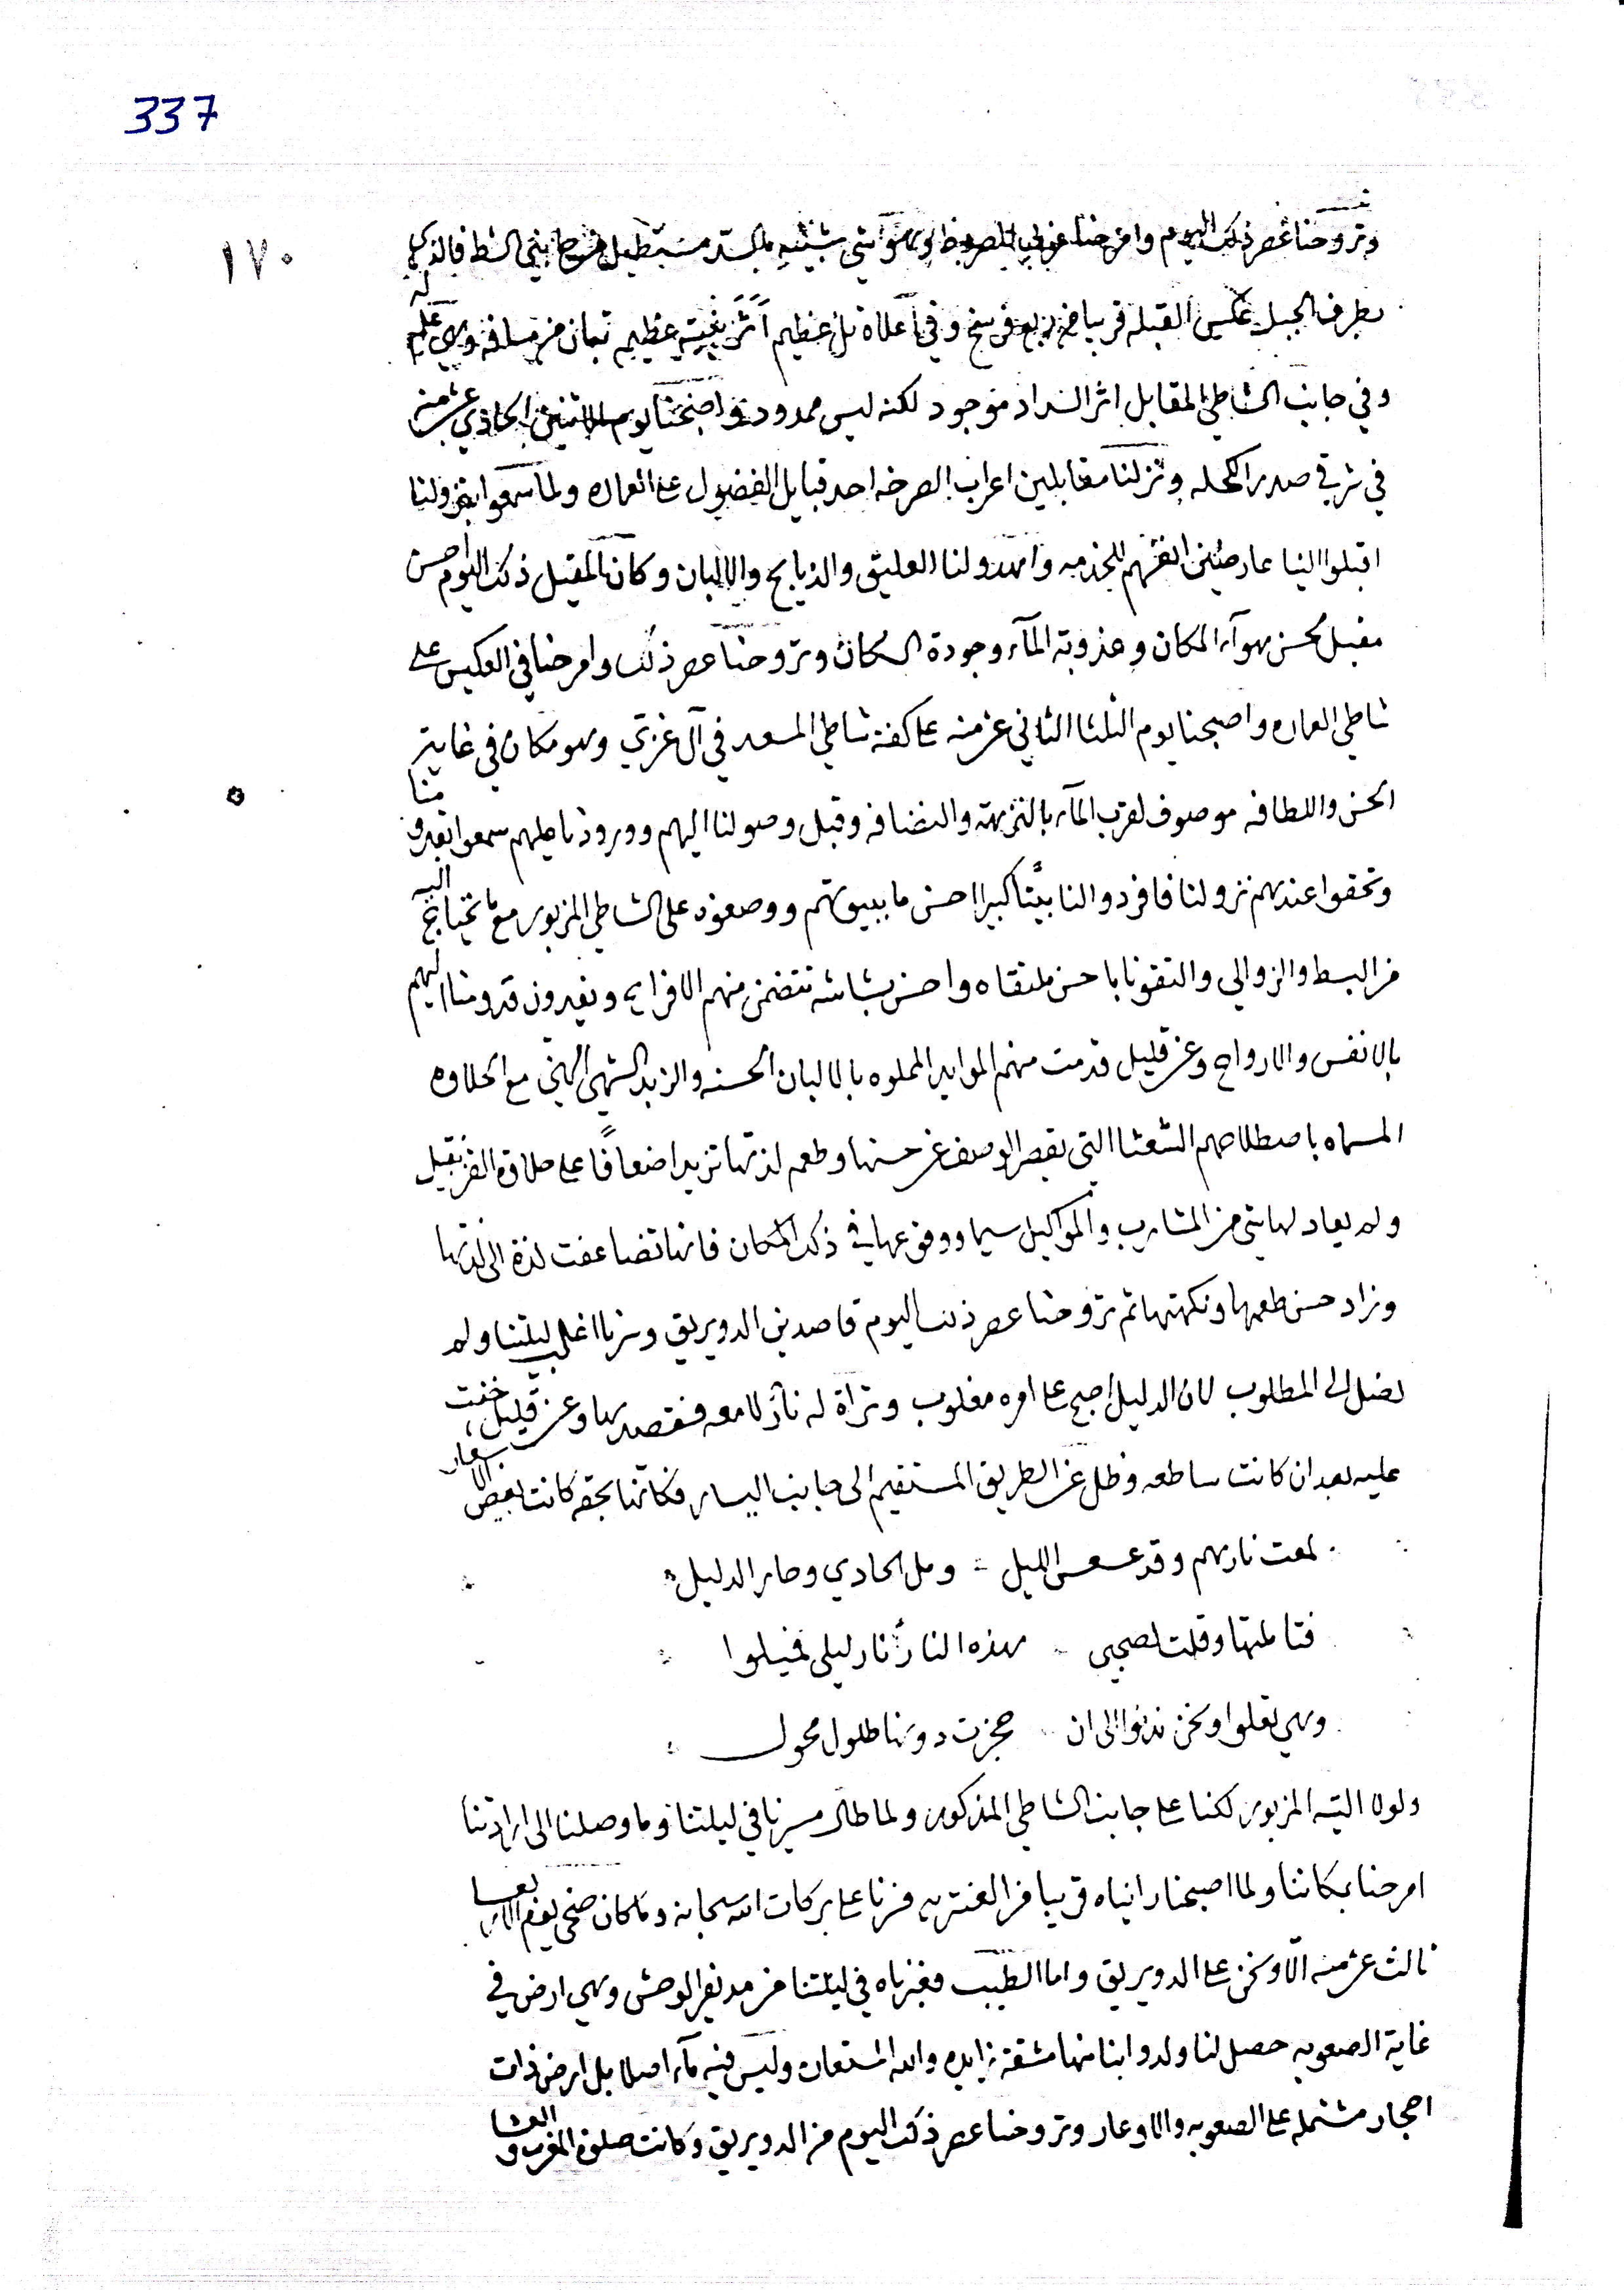 337
١٧٠
وتروحنا عصر ذلك اليوم وامرحنا غربي وهو شي شبيه بالسد مستطيل بني الشط فالذي
بطرف الجبل عكس القبله قريبا من ربع فرسخ وفي اعلاه تل عظيم تبان من مسافه وهي عليه
وفي جانب الشاطي المقابل اثر السداد موجود لكنه ليس ممدود واصبحنا يوم الاثنين الحادي عشر منه
في شرقي صدر الكحله ونزلنا مقابلين اعراب الصرخه احد قبايل الفضول على العماره ولما سمعوا بنزولنا
اقبلوا الينا عارضين انفسهم للخدمه واهدو لنا العليق والذبايح والالبان وكان المقيل ذلك اليوم احسن
مقيل لحسن هوآء المكان وعذوبة المآء وجودة السكان وتروحنا عصر ذلك وامرحنا في العكيس على
شاطي العماره واصبحنا يوم الثلثا الثاني عشر منه على كفة شاطي المسعد في آل غزي وهو مكان في غاية
الحسن واللطافه موصوف لقرب المآء بالنزهة والنضافه وقبل وصولنا اليهم وورودنا عليهم سمعوا بقدومنا
وتحققوا عندهم نزولنا فافردوا لنا بيتًا كبيرا احسن ما ببيوتهم ووضعوه على الشاطي المزبور مع ما يحتاج اليه
من البسط والزوالي والتقونا باحسن ملتقاه واحسن بشاشه تتضمن منهم الافراح ويفدون قدومنا اليهم
بالانفس والارواح وعن قليل قدمت منهم الموايد المملوه بالالبان الحسنه والزبد الشهي الهني مع الحلاوه
المسماه باصطلاحهم الشعثا التي يقصر الوصف عن حسنها وطعم لذتها تزيد اضعافًا على حلاوة
ولم يعاد لها شي من المشارب والمواكيل سيما ووقوعها في ذلك المكان فانها تضاعفت لذة الى لذتها
وزاد حسن طعمها ونكهتها ثم تروحنا عصر ذلك اليوم قاصدين الدويريق وسرنا اغلب ليلتنا ولم
نصل الى المطلوب لان الدليل اصبح على امره مغلوب وتراة له نار لامعه فقصدها وعن قليل خفت
عليه بعد ان كانت ساطعه وظل عن الطريق المستقيم الى جانب اليسار فكانها بحقه كانت بعض الاشعار
لمعت نارهم وقد عسعس الليل = ومل الحادي وحار الدليل
فتاملتها وقلت لصحبي هذه النار نار ليلى فميلوا
وهي تعلوا ونحن ندنوا الى ان حجزت دونها طلول محول
ولولا التيه المزبور لكنا على جانب الشاطي المذكور ولما طال مسيرنا في ليلتنا وما وصلنا الى ارادتنا
امرحنا بمكاننا ولما اصبحنا راينا قريبا من العنتريه فسرنا على بركات الله سبحانه وماكان ضحى يوم الاربعا
ثالث عشر منه الّا ونحن على الدويريق واما الطيب فعبرناه في ليلتنا من مد نفر الوحش وهي ارض في
غاية الصعوبه حصل لنا ولدوابنا منها مشقة زايده والله المستعان وليس فيه مآء اصلا بل ارض ذات
احجار مشتمله على الصعوبه والاوعار وتروحنا عصر ذلك اليوم من الدويريق وكانت صلوة المغرب والعشا